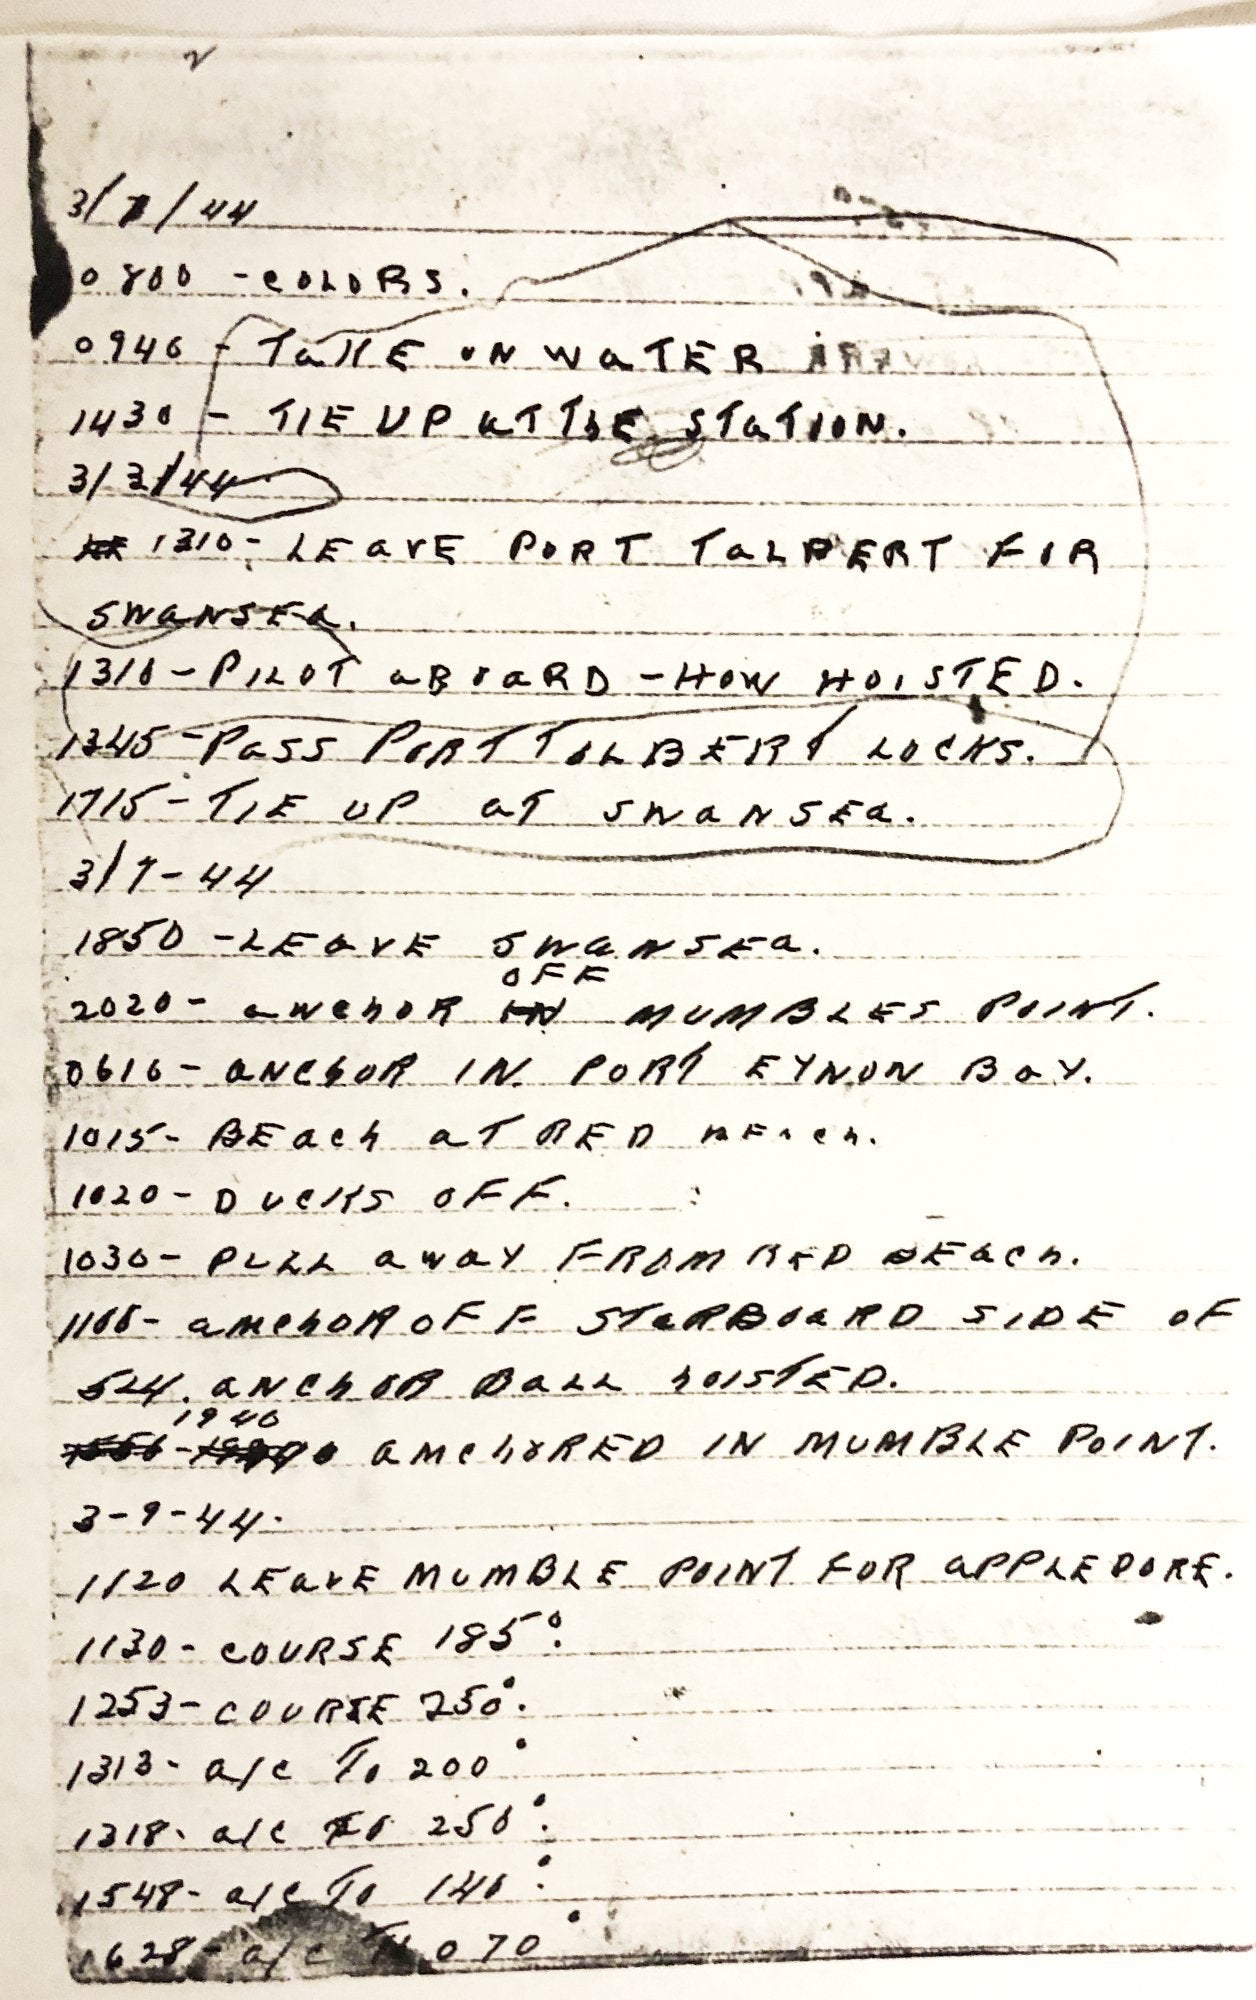 2
3/1/44
0800 - COLORS.
0940 - TAKE ON WATER
1430 - TIE UP AT THE STATION.
3/3/44
1310 - LEAVE PORT TALBERT FOR
SWANSEA.
1310 - PILOT ABOARD - HOW HOISTED.
1345 - PASS PORT TALBERT LOCKS.
1715 - TIE UP AT SWANSEA.
3/7-44
1850 - LEAVE SWANSEA.
OFF
2020 - ANCHOR IN MUMBLES POINT.
0610 - ANCHOR IN PORT EYNON BAY.
1015 - BEACH AT RED BEACH.
1020 - DUCKS OFF.
1030 - PULL AWAY FROM RED BEACH.
1100 - ANCHOR OFF STARBOARD SIDE OF
524. ANCHOR BALL HOISTED.
1940
ANCHORED IN MUMBLE POINT.
3-9-44.
1120 LEAVE MUMBLE POINT FOR APPLEDORE.
1130 - COURSE 185°.
1253 - COURSE 250°.
1313 - A/C TO 200°
1318. A/C TO 250°.
1548 - A/C TO 140°.
1628 - A/C TO 070°